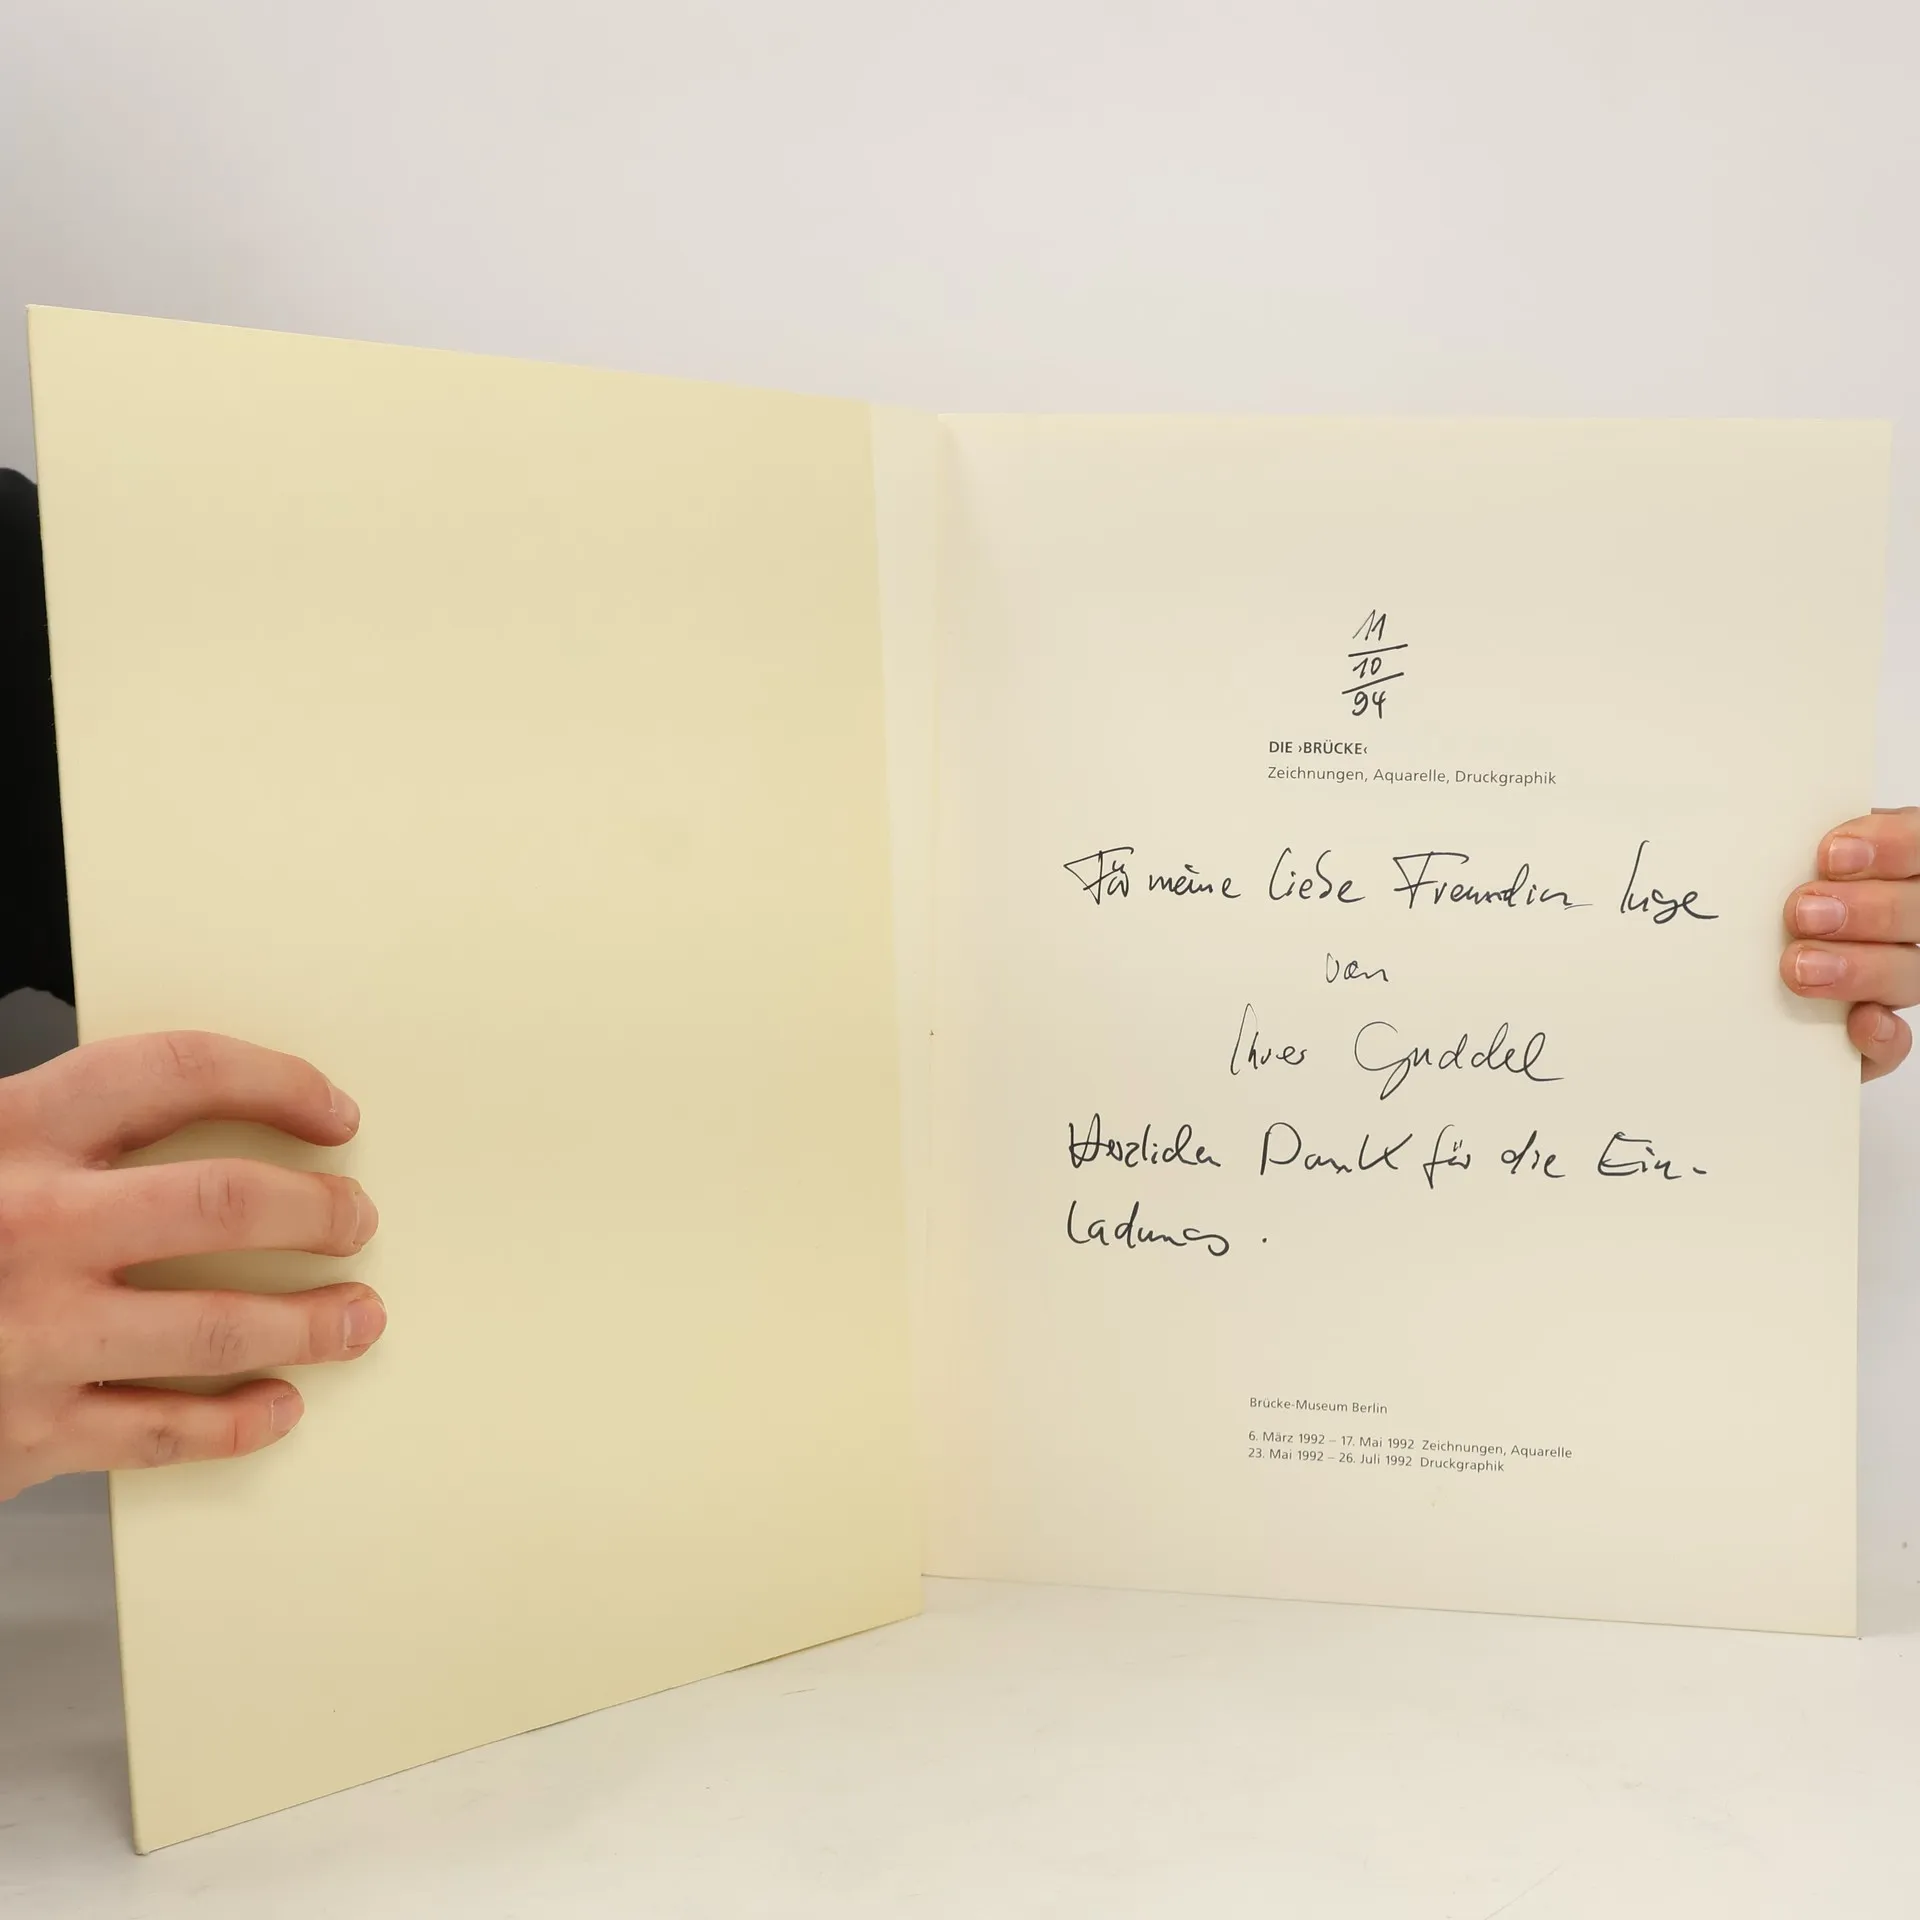 11
10
94
DIE ›BRÜCKE‹
Zeichnungen, Aquarelle, Druckgraphik
Für meine liebe Freundin Inge
von
Ihrer Guddel
Herzlichen Dank für die Ein-
ladung .
Brücke-Museum Berlin
6. März 1992 – 17. Mai 1992 Zeichnungen, Aquarelle
23. Mai 1992 – 26. Juli 1992 Druckgraphik